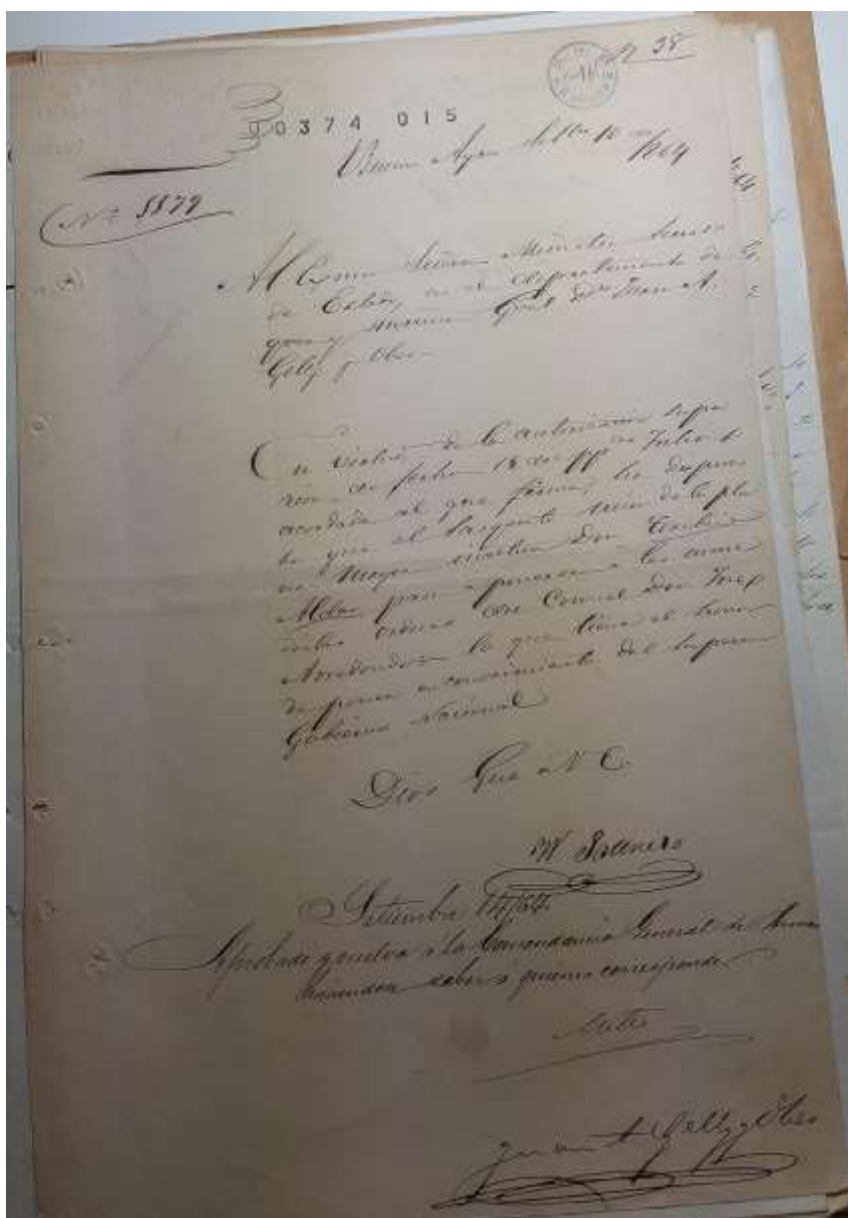 Nº 38
00374 015
Buenos Ayres 10 de 1864
Nº 5579
Al Exmo Señor Ministro
de Estado en el departamento de Gue
rra y Marina Gral Dn Juan A.
Gelly y Obes
En virtud de la autorización supe
rior de fecha 18 de ppdo Julio
acordada al que firma, ha dispues
to que el Sargento de la pla
na Mayor Don
para a las
ordenes del Coronel Don José
Arredondo lo que tiene el honor
de poner en conocimiento del Superior
Gobierno Nacional
Dios Gue a V E.
W Paunero
Setiembre 14/64.
Aprobado y vuelva a la Comandancia General de Armas
haciendose saber a quienes corresponde
Mitre
Juan A Gelly y Obes